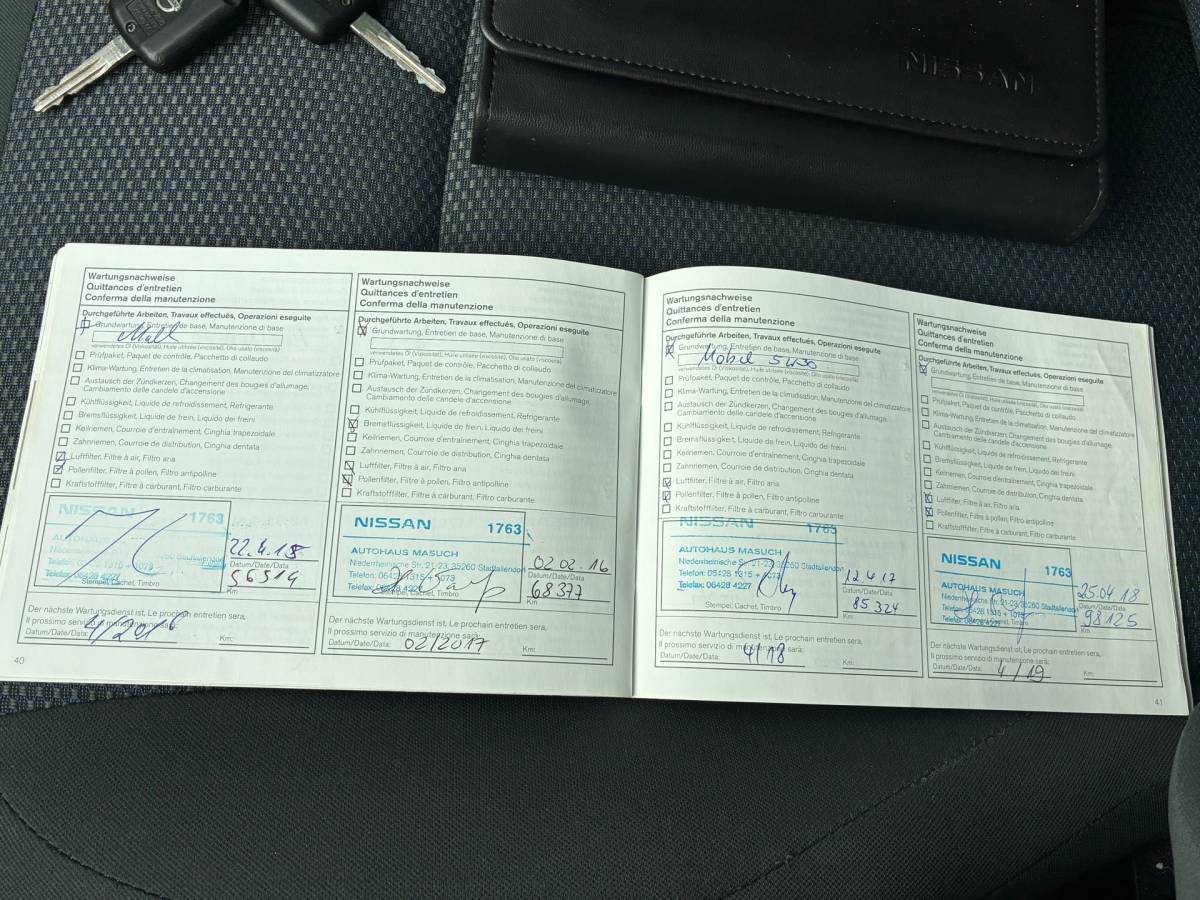 NISSAN
Wartungsnachweise
Quittances d'entretien
Conferma della manutenzione
Durchgeführte Arbeiten, Travaux effectués, Operazioni eseguite
Grundwartung, Entretien de base, Manutenzione di base
verwendetes Öl (Viskosität), Huile utilisée (viscosité), Olio usato (viscosità)
Prüfpaket, Paquet de contrôle, Pacchetto di collaudo
Klima-Wartung, Entretien de la climatisation, Manutenzione del climatizzatore
Austausch der Zündkerzen, Changement des bougies d'allumage,
Cambiamento delle candele d'accensione
Kühlflüssigkeit, Liquide de refroidissement, Refrigerante
Bremsflüssigkeit, Liquide de frein, Liquido dei freini
Keilriemen, Courroie d'entraînement, Cinghia trapezoidale
Zahnriemen, Courroie de distribution, Cinghia dentata
Luftfilter, Filtre à air, Filtro aria
Pollenfilter, Filtre à pollen, Filtro antipolline
Kraftstofffilter, Filtre à carburant, Filtro carburante
NISSAN 1763
Telefon: 06428 1315 + 5079
Telefax: 06428 4227
Stempel, Cachet, Timbro
Datum/Date/Data
56514
Km
Der nächste Wartungsdienst ist, Le prochain entretien sera,
Il prossimo servizio di manutenzione sarà:
Datum/Date/Data:
Km:
40
Wartungsnachweise
Quittances d'entretien
Conferma della manutenzione
Durchgeführte Arbeiten, Travaux effectués, Operazioni eseguite
Grundwartung, Entretien de base, Manutenzione di base
verwendetes Öl (Viskosität), Huile utilisée (viscosité), Olio usato (viscosità)
Prüfpaket, Paquet de contrôle, Pacchetto di collaudo
Klima-Wartung, Entretien de la climatisation, Manutenzione del climatizzatore
Austausch der Zündkerzen, Changement des bougies d'allumage,
Cambiamento delle candele d'accensione
Kühlflüssigkeit, Liquide de refroidissement, Refrigerante
Bremsflüssigkeit, Liquide de frein, Liquido dei freini
Keilriemen, Courroie d'entraînement, Cinghia trapezoidale
Zahnriemen, Courroie de distribution, Cinghia dentata
Luftfilter, Filtre à air, Filtro aria
Pollenfilter, Filtre à pollen, Filtro antipolline
Kraftstofffilter, Filtre à carburant, Filtro carburante
NISSAN 1763
AUTOHAUS MASUCH
Niederrheinische Str. 21-23, 35260 Stadtallendorf
Telefon: 06428 1315 + 5079
Telefax: 06428 4227
02.02.16
Datum/Date/Data
68377
Km
Der nächste Wartungsdienst ist, Le prochain entretien sera,
Il prossimo servizio di manutenzione sarà:
Datum/Date/Data: 02/2017 Km:
Wartungsnachweise
Quittances d'entretien
Conferma della manutenzione
Durchgeführte Arbeiten, Travaux effectués, Operazioni eseguite
Grundwartung, Entretien de base, Manutenzione di base
Mobil 5W30
verwendetes Öl (Viskosität), Huile utilisée (viscosité), Olio usato (viscosità)
Prüfpaket, Paquet de contrôle, Pacchetto di collaudo
Klima-Wartung, Entretien de la climatisation, Manutenzione del climatizzatore
Austausch der Zündkerzen, Changement des bougies d'allumage,
Cambiamento delle candele d'accensione
Kühlflüssigkeit, Liquide de refroidissement, Refrigerante
Bremsflüssigkeit, Liquide de frein, Liquido dei freini
Keilriemen, Courroie d'entraînement, Cinghia trapezoidale
Zahnriemen, Courroie de distribution, Cinghia dentata
Luftfilter, Filtre à air, Filtro aria
Pollenfilter, Filtre à pollen, Filtro antipolline
Kraftstofffilter, Filtre à carburant, Filtro carburante
NISSAN 1763
AUTOHAUS MASUCH
Niederrheinische Str. 21-23, 35260 Stadtallendorf
Telefon: 06428 1315 + 5079
Telefax: 06428 4227
Stempel, Cachet, Timbro
12.4.17
Datum/Date/Data
85324
Km
Der nächste Wartungsdienst ist, Le prochain entretien sera,
Il prossimo servizio di manutenzione sarà:
Datum/Date/Data: 4/18 Km:
Wartungsnachweise
Quittances d'entretien
Conferma della manutenzione
Durchgeführte Arbeiten, Travaux effectués, Operazioni eseguite
Grundwartung, Entretien de base, Manutenzione di base
verwendetes Öl (Viskosität), Huile utilisée (viscosité), Olio usato (viscosità)
Prüfpaket, Paquet de contrôle, Pacchetto di collaudo
Klima-Wartung, Entretien de la climatisation, Manutenzione del climatizzatore
Austausch der Zündkerzen, Changement des bougies d'allumage,
Cambiamento delle candele d'accensione
Kühlflüssigkeit, Liquide de refroidissement, Refrigerante
Bremsflüssigkeit, Liquide de frein, Liquido dei freini
Keilriemen, Courroie d'entraînement, Cinghia trapezoidale
Zahnriemen, Courroie de distribution, Cinghia dentata
Luftfilter, Filtre à air, Filtro aria
Pollenfilter, Filtre à pollen, Filtro antipolline
Kraftstofffilter, Filtre à carburant, Filtro carburante
NISSAN 1763
AUTOHAUS MASUCH
Niederrheinische Str. 21-23, 35260 Stadtallendorf
Telefon: 06428 1315 + 5079
Telefax: 06428 4227
25.04.18
Datum/Date/Data
98125
Km
Der nächste Wartungsdienst ist, Le prochain entretien sera,
Il prossimo servizio di manutenzione sarà:
Datum/Date/Data: 4/19 Km:
41